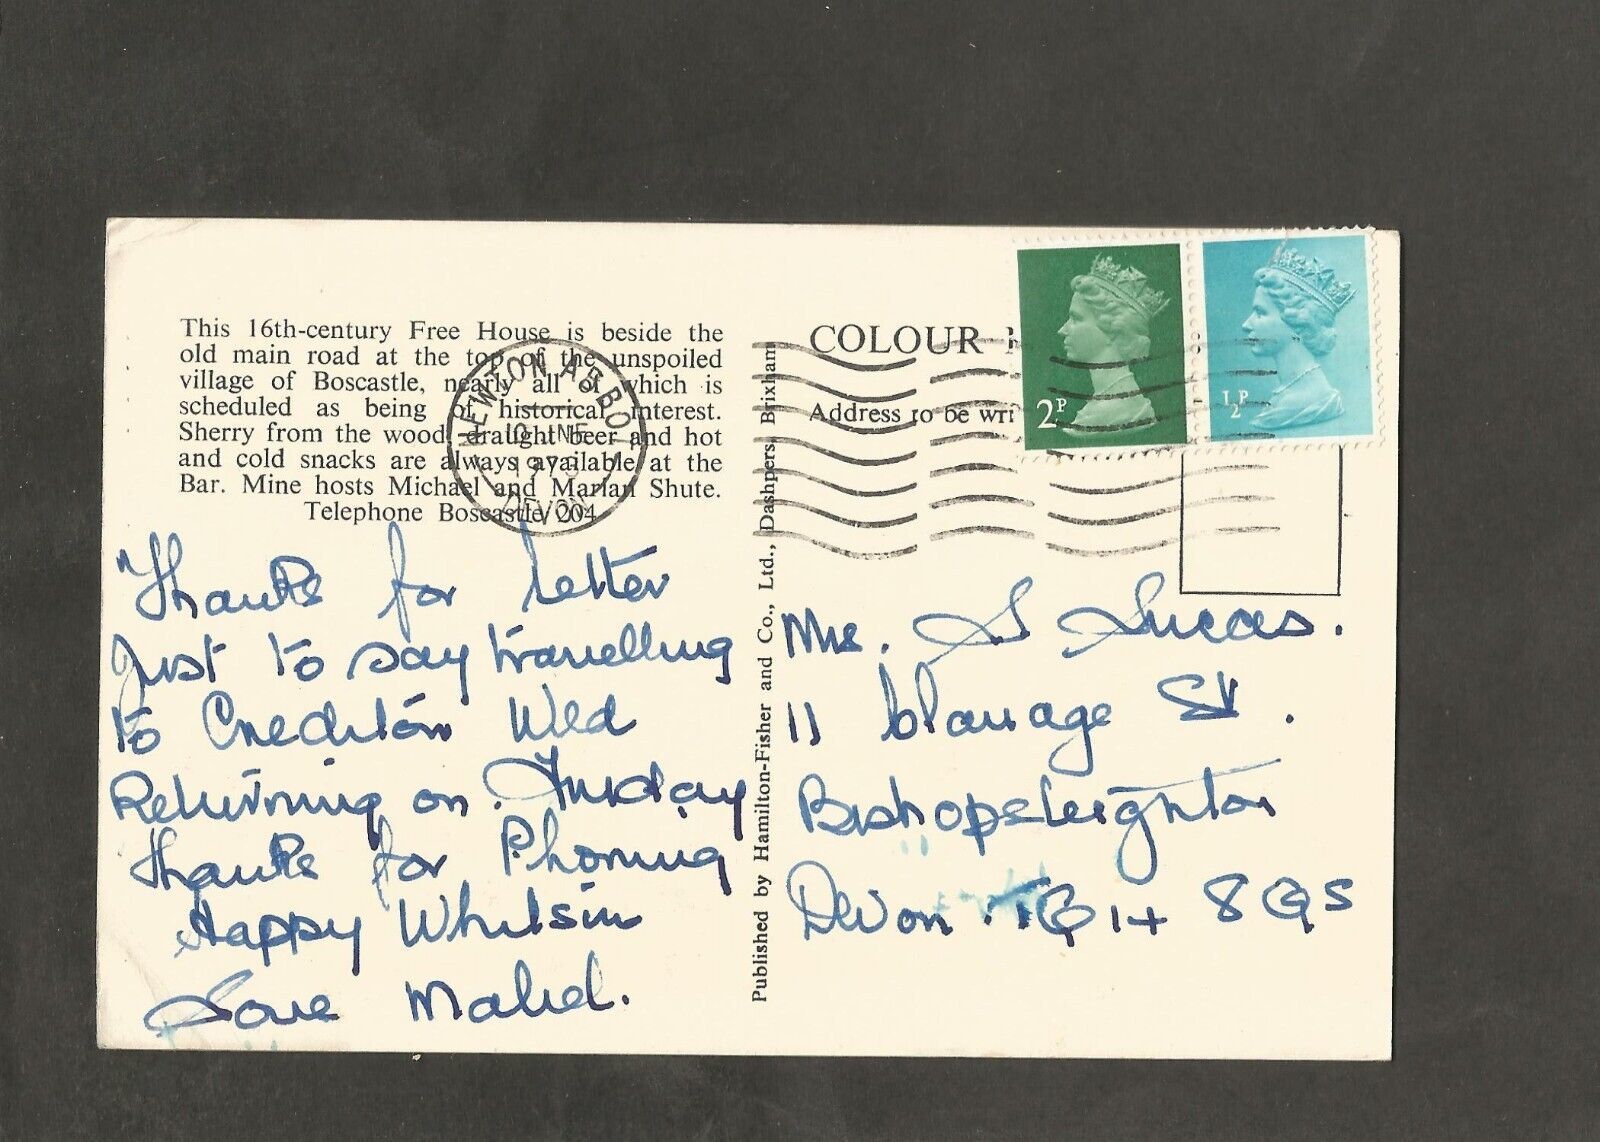 This 16th-century Free House is beside the
old main road at the top of the unspoiled
village of Boscastle, nearly all of which is
scheduled as being of historical interest.
Sherry from the wood, draught beer and hot
and cold snacks are always available at the
Bar. Mine hosts Michael and Marian Shute.
Telephone Boscastle 204
NEWTON ABBOT
DEVON
Thanks for letter
Just to say travelling
to Crediton Wed
Returning on Friday
Thanks for Phoning
Happy Whitsun
Love Mabel.
Published by Hamilton-Fisher and Co., Ltd., Dashpers, Brixham
COLOUR
Address to be wri
2P
½P
Mrs. S Lucas.
11 St.
Bishopsteignton
Devon. TQ14 8QS